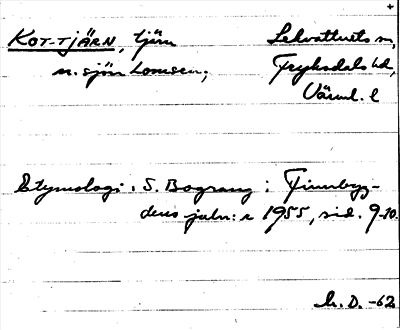 KOT-TJÄRN, tjärn Lekvattnets sn,
n. sjön Lomsen; Fryksdals hd,
Värml. l
Etymologi: S. Bograng i Finnbyg-
dens julnr 1955, sid. 9-10.
D. -62